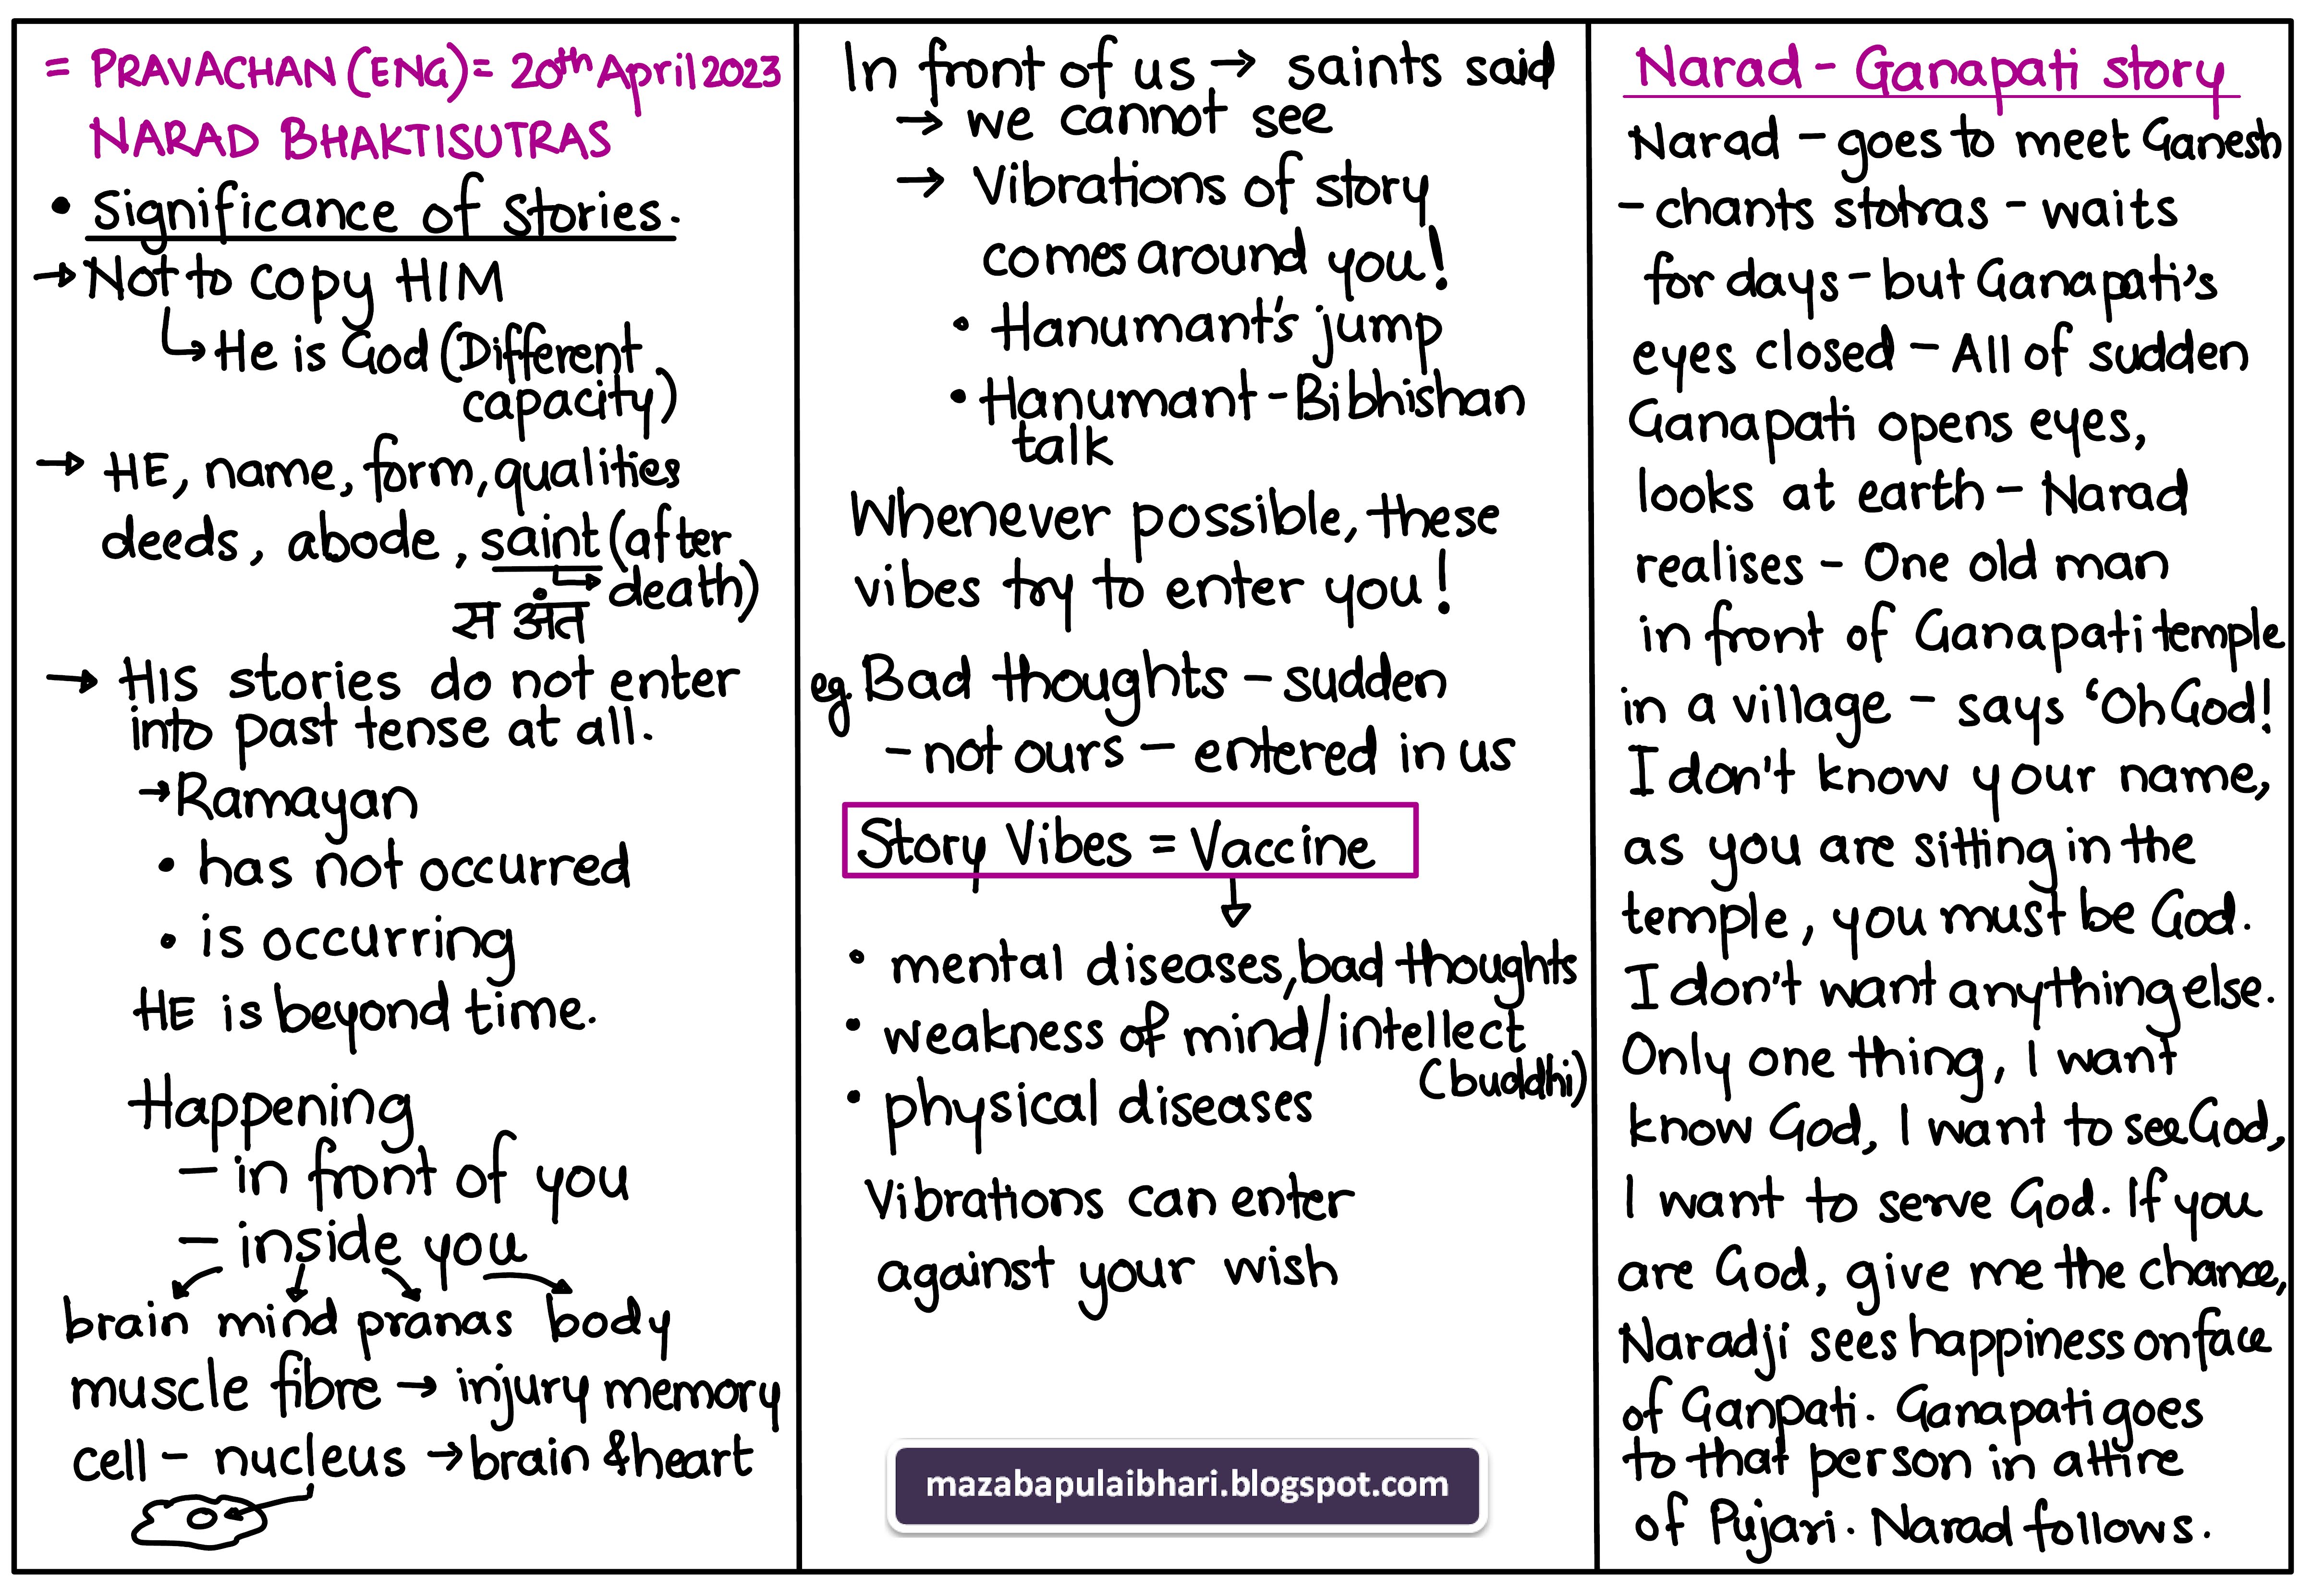 = PRAVACHAN (ENG) = 20th April 2023
NARAD BHAKTISUTRAS
• Significance of Stories.
→ Not to copy HIM
↳ He is God (Different
capacity)
→ HE, name, form, qualities
deeds, abode, saint (after
↳ death)
स अंत
→ HIS stories do not enter
into past tense at all.
→ Ramayan
• has not occurred
• is occurring
HE is beyond time.
Happening
– in front of you
– inside you
brain mind pranas body
muscle fibre → injury memory
cell – nucleus → brain & heart
In front of us → saints said
→ we cannot see
→ Vibrations of story
comes around you!
• Hanumant's jump
• Hanumant - Bibhishan
talk
Whenever possible, these
vibes try to enter you!
eg. Bad thoughts – sudden
– not ours – entered in us
Story Vibes = Vaccine
↓
• mental diseases, bad thoughts
• weakness of mind/intellect
(buddhi)
• physical diseases
Vibrations can enter
against your wish
mazabapulaibhari.blogspot.com
Narad - Ganapati story
Narad – goes to meet Ganesh
– chants stotras – waits
for days – but Ganapati's
eyes closed – All of sudden
Ganapati opens eyes,
looks at earth – Narad
realises – One old man
in front of Ganapati temple
in a village – says 'Oh God!
I don't know your name,
as you are sitting in the
temple, you must be God.
I don't want anything else.
Only one thing, I want
know God, I want to see God,
I want to serve God. If you
are God, give me the chance,
Naradji sees happiness on face
of Ganpati. Ganapati goes
to that person in attire
of Pujari. Narad follows.